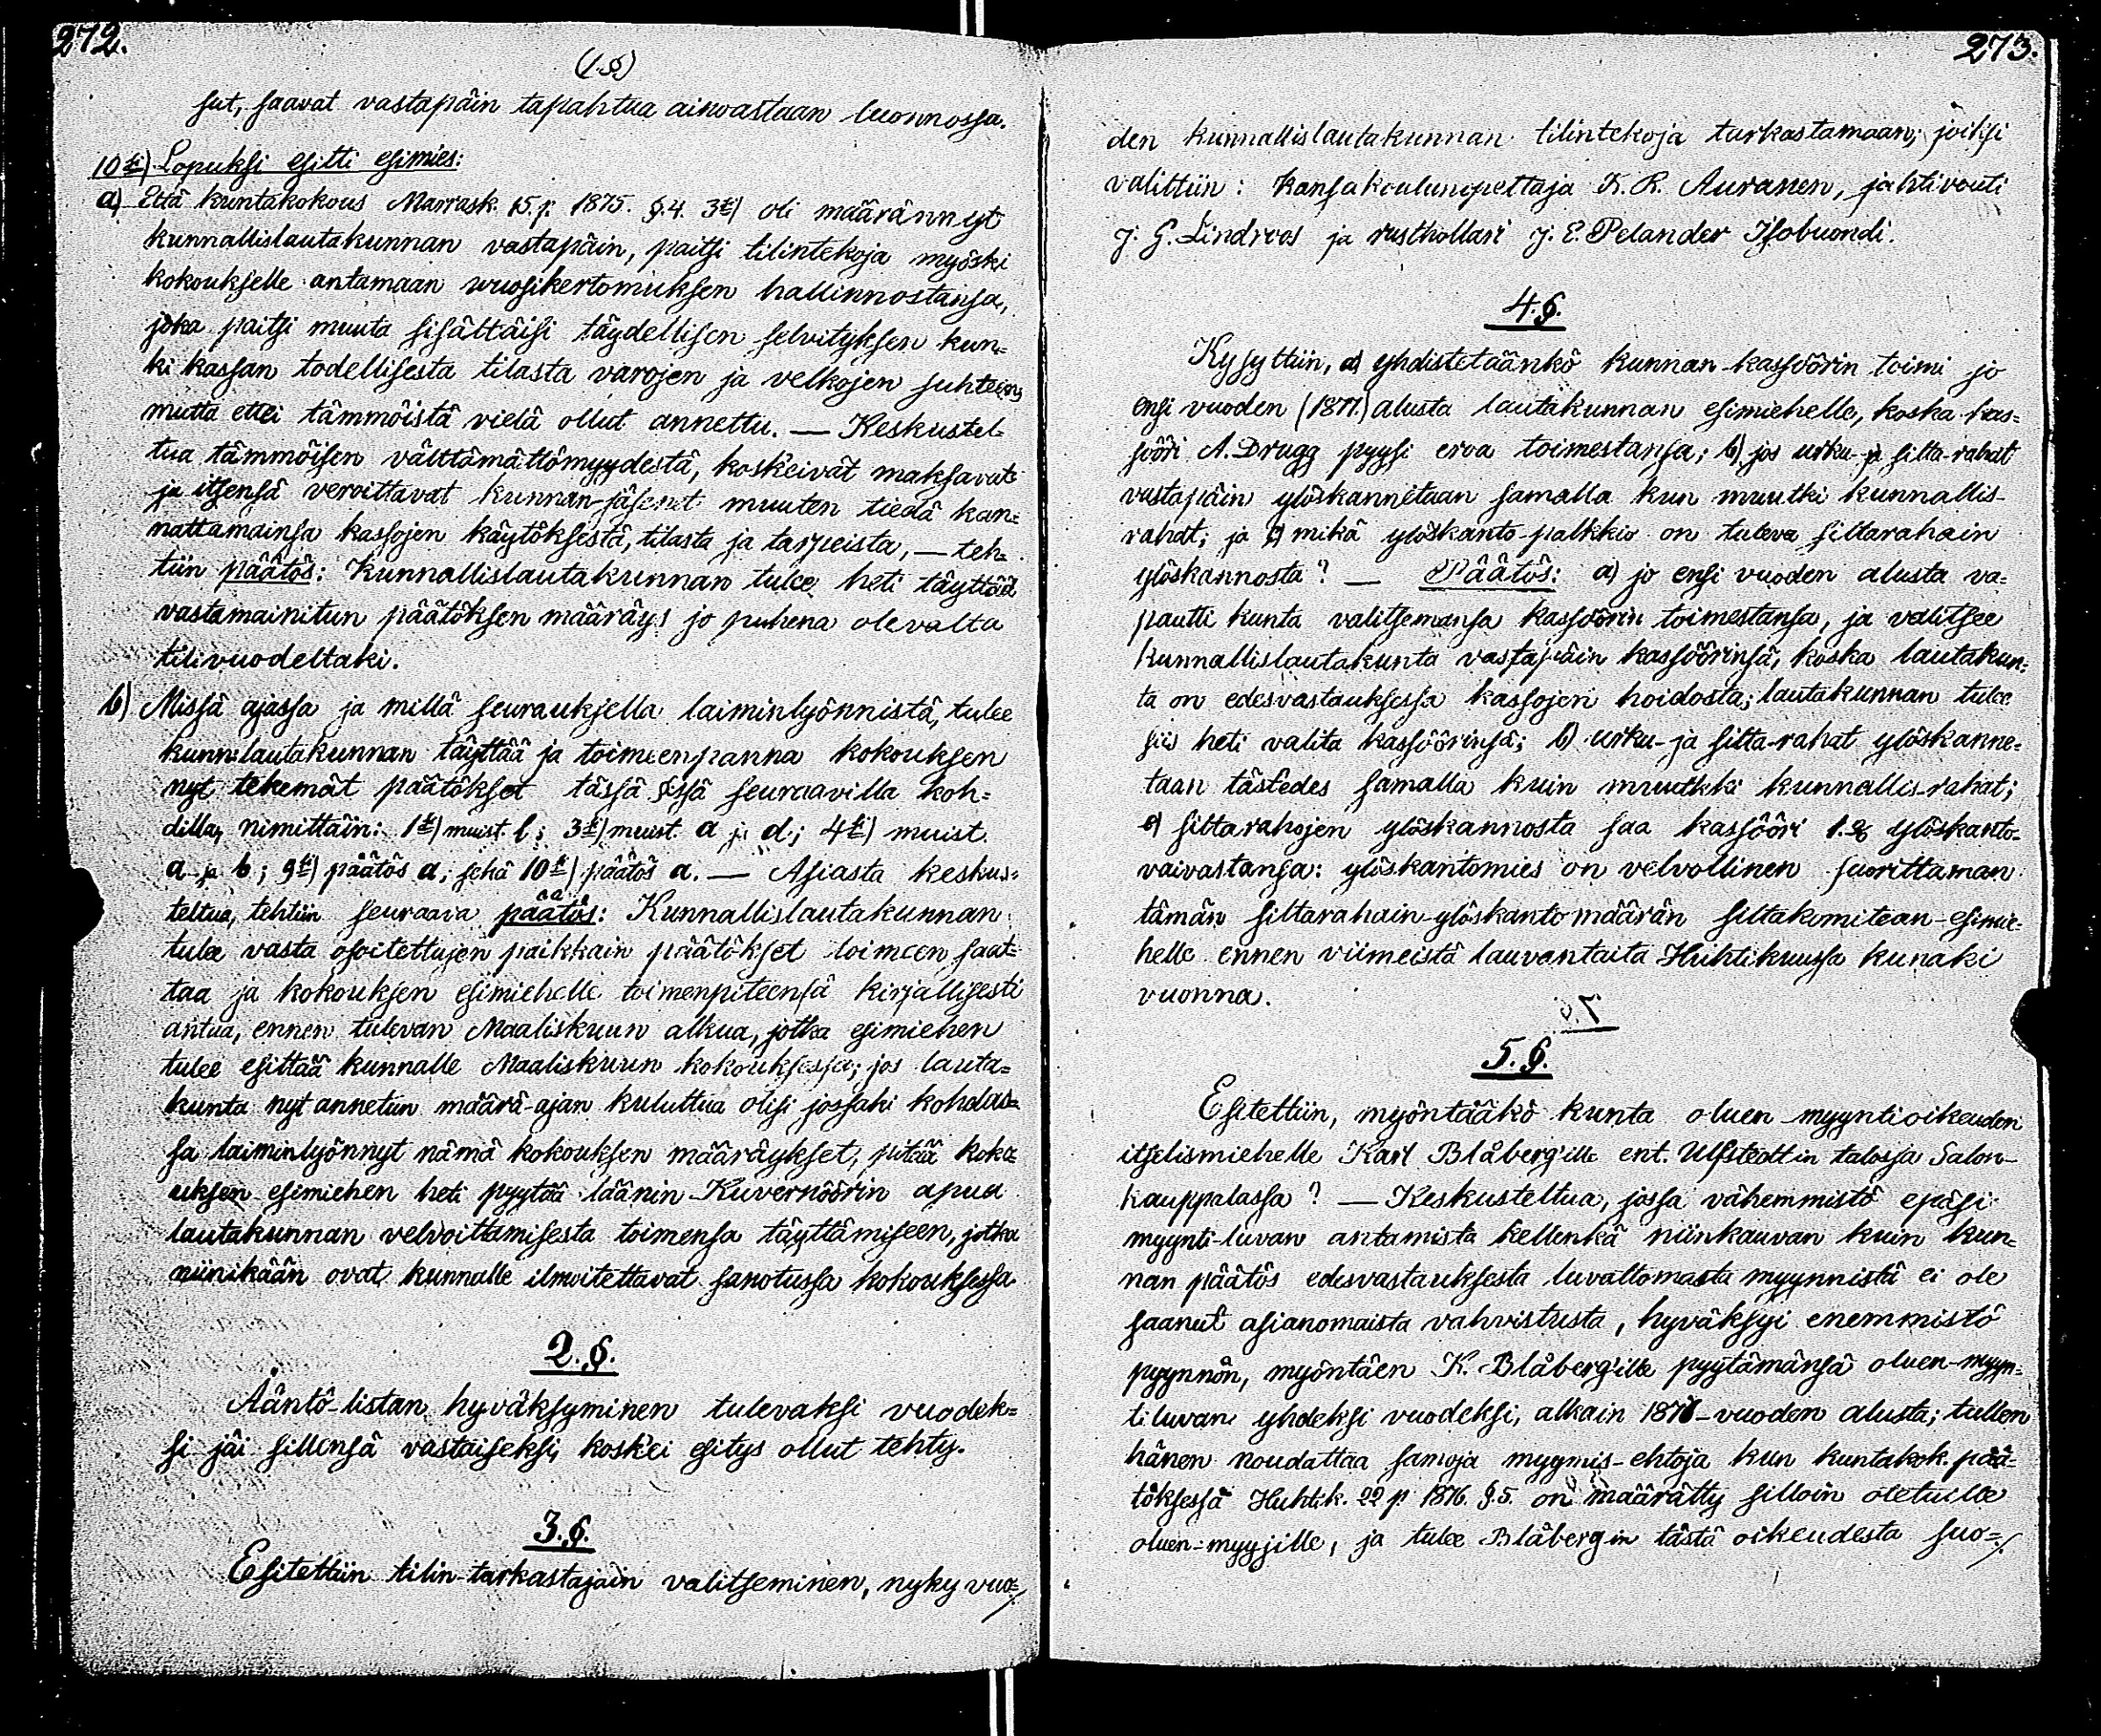 272.
(1.§)
sut, saavat vastapäin tapahtua ainoastaan luonnossa.
10ksi) Lopuksi esitti esimies:
a) Että kuntakokous Marrask. 15. p: 1875. §. 4. 3ksi) oli määrännyt
kunnallislautakunnan vastapäin, paitsi tilintekoja myöski
kokoukselle antamaan wuosikertomuksen hallinnostansa,
joka paitsi muuta sisältäisi täydellisen selvityksen kun-
ki kassan todellisesta tilasta varojen ja velkojen suhteen,
mutta ettei tämmöistä vielä ollut annettu. — Keskustel-
tua tämmöisen välttämättömyydestä, kosk'eivät maksavat
ja itsensä veroittavat kunnan-jäsenet muuten tiedä kan-
nattamainsa kassojen käytöksestä, tilasta ja tarpeista, — teh-
tiin päätös: Kunnallislautakunnan tulee heti täyttää
vastamainitun päätöksen määräys jo puhena olevalta
tilivuodeltaki.
b) Missä ajassa ja millä seurauksella laiminlyönnistä, tulee
kunn:lautakunnan täyttää ja toimeenpanna kokouksen
nyt tekemät päätökset tässä §:ssä seuraavilla koh-
dilla, nimittäin: 1ksi) muist. b; 3ksi) muist. a ja d; 4ksi) muist.
a ja b; 9ksi) päätös a; sekä 10ksi) päätös a. — Asiasta keskus-
teltua, tehtiin seuraava päätös: Kunnallislautakunnan
tulee vasta osoitettujen paikkain päätökset toimeen saat-
taa ja kokouksen esimiehelle toimenpiteensä kirjallisesti
antaa, ennen tulevan Maaliskuun alkua, jotka esimiehen
tulee esittää kunnalle Maaliskuun kokouksessa; jos lauta-
kunta nyt annetun määrä-ajan kuluttua olisi jossaki kohdas-
sa laiminlyönnyt nämä kokouksen määräykset, pitää koko-
uksen esimiehen heti pyytää läänin Kuvernöörin apua
lautakunnan velvoittamisesta toimensa täyttämiseen, jotka
niinikään ovat kunnalle ilmoitettavat sanotussa kokouksessa.
2. §.
Ääntö-listan hyväksyminen tulevaksi vuodek-
si jäi sillensä vastaiseksi, kosk'ei esitys ollut tehty.
3. §.
Esitettiin tilin-tarkastajain valitseminen, nyky vuo-/.
273.
den kunnallislautakunnan tilintekoja tarkastamaan; joiksi
valittiin: kansakoulunopettaja K. R. Auranen, jahtivouti
J. G. Lindroos ja rusthollari J. E. Pelander Isobuondi.
4. §.
Kysyttiin, a) yhdistetäänkö kunnan-kassöörin toimi jo
ensi vuoden (1877.) alusta lautakunnan esimiehelle, koska kas-
sööri A. Drugg pyysi eroa toimestansa; b) jos urku- ja silta-rahat
vastapäin ylöskannetaan samalla kun muutki kunnallis-
rahat; ja c) mikä ylöskanto-palkkio on tuleva siltarahain
ylöskannosta? — Päätös: a) jo ensi vuoden alusta va-
pautti kunta valitsemansa kassöörin toimestansa, ja valitsee
kunnallislautakunta vastapäin kassöörinsä, koska lautakun-
ta on edesvastauksessa kassojen hoidosta; lautakunnan tulee
siis heti valita kassöörinsä; b) urku- ja silta-rahat ylöskanne-
taan tästedes samalla kuin muutkki kunnallis-rahat;
c) siltarahojen ylöskannosta saa kassööri 1.% ylöskanto-
vaivastansa: ylöskantomies on velvollinen suorittaman
tämän siltarahain-ylöskanto määrän siltakomitean-esimie-
helle ennen viimeistä lauvantaita Huhtikuussa kunaki
vuonna.
5. §.
Esitettiin, myöntääkö kunta oluen-myyntioikeuden
itsellismiehelle Karl Blåberg'ille ent. Ulfstedtin talossa Salon-
kauppalassa? — Keskusteltua, jossa vähemmistö epäsi
myynti-luvan antamista kellenkä niinkauvan kuin kun-
nan päätös edesvastauksesta luvattomasta myynnistä ei ole
saanut asianomaista vahvistusta, hyväksyi enemmistö
pyynnön, myöntäen K. Blåberg'ille pyytämänsä oluen-myyn-
tiluvan yhdeksi vuodeksi, alkain 1877-vuoden alusta; tullen
hänen noudattaa samoja myymis-ehtoja kun kuntakok. pää-
töksessä Huhtik. 22 p 1876. §. 5. on määrätty silloin oletuille
oluen-myyjille, ja tulee Blåbergin tästä oikeudesta suo-/.